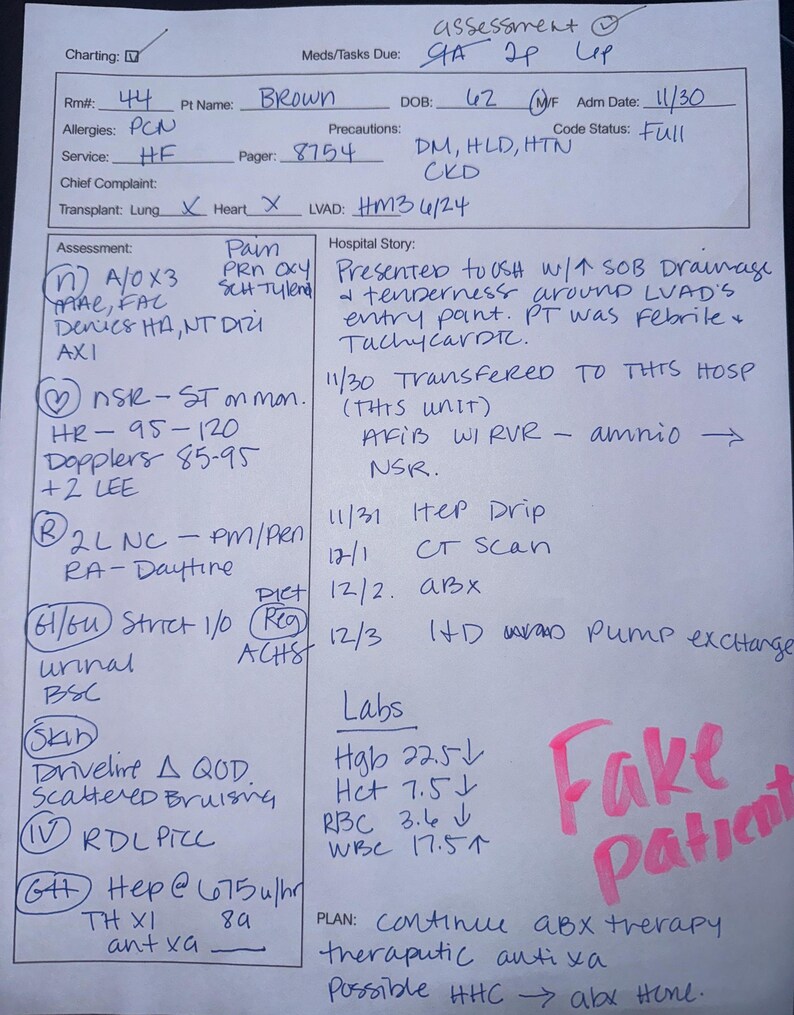 assessment ✓
Charting: ☑ Meds/Tasks Due: 9A 2p 6p
Rm#: 44 Pt Name: Brown DOB: 62 M/F Adm Date: 11/30
Allergies: PCN Precautions: Code Status: Full
Service: HF Pager: 8754 DM, HLD, HTN
CKD
Chief Complaint:
Transplant: Lung X Heart X LVAD: HM3 6/24
Assessment: Pain
PRN oxy
SCH Tylenol
(N) A/O X3
MAE, FAC
Denies HA, NT Dizi
AX1
(♡) NSR - ST on mon.
HR - 95 - 120
Dopplers 85-95
+2 LEE
(R) 2L NC - PM/PRN
RA - Daytime
GI/GU Strict I/O Diet
Reg
ACHS
urinal
BSC
Skin
Driveline Δ QOD
Scattered Bruising
IV RDL PICC
Gtt Hep @ 675 u/hr
TH X1 8a
anti xa ___
Hospital Story:
Presented to OSH W/ ↑ SOB Drainage
& tenderness around LVAD's
entry point. PT was Febrile &
Tachycardic.
11/30 Transfered TO THIS HOSP
(THIS UNIT)
AFIB W/ RVR - amnio →
NSR.
11/31 Hep Drip
12/1 CT Scan
12/2. abx
12/3 I+D Pump exchange
Labs
Hgb 22.5 ↓
Hct 7.5 ↓
RBC 3.6 ↓
WBC 17.5 ↑
Fake
patient
PLAN: continue abx therapy
theraputic anti xa
Possible HHC → abx Home.